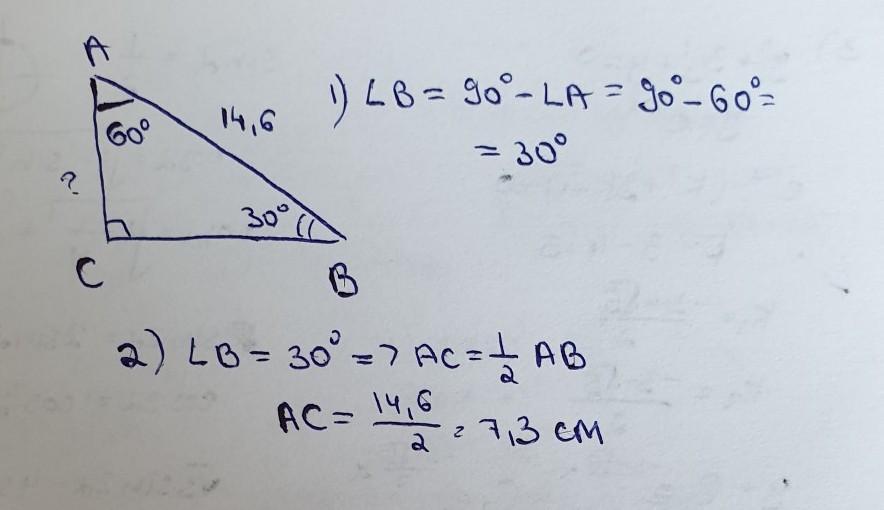 A
60°
14,6
?
30°
C
B
1) ∠B = 90° - ∠A = 90° - 60° =
= 30°
2) ∠B = 30° => AC = 1/2 AB
AC = 14,6/2 = 7,3 см